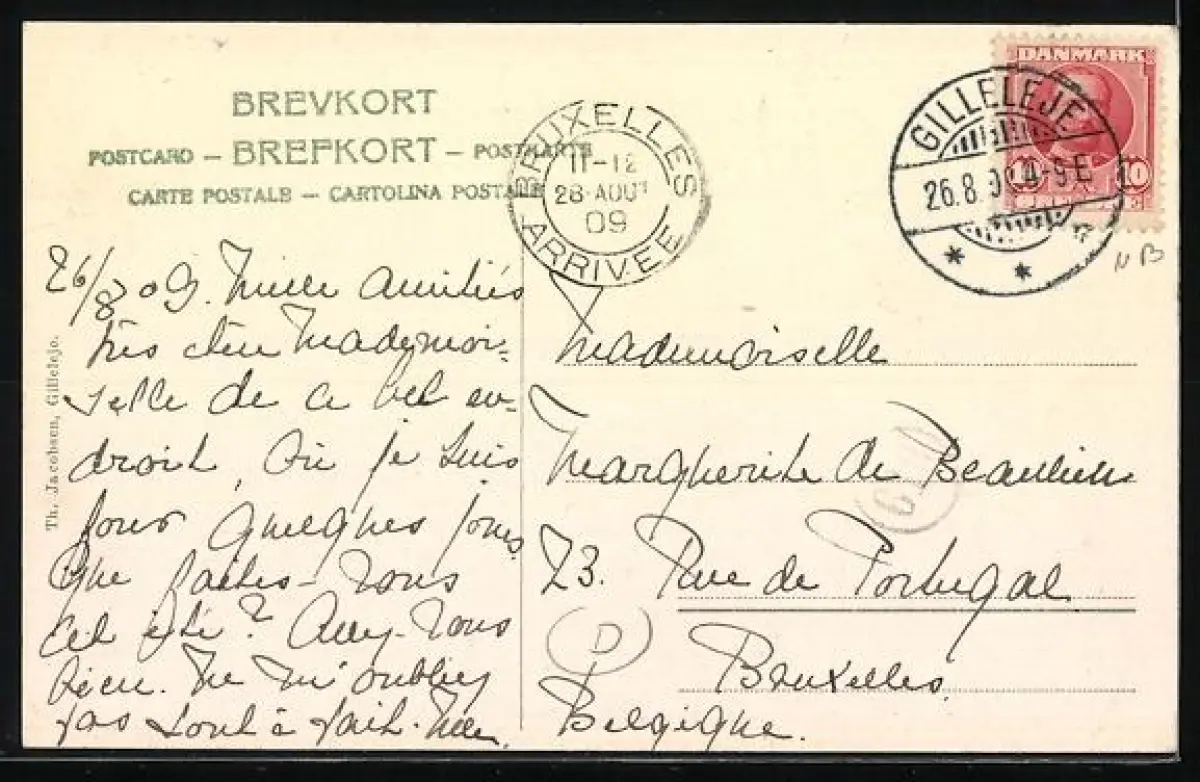 BREVKORT
POSTCARD – BREFKORT – POSTKARTE
CARTE POSTALE – CARTOLINA POSTALE
BRUXELLES
11-12
28-AOUT
09
ARRIVÉE
DANMARK
10 10
GILLELEJE
26.8.09 4-9E
NB
26/8 09. Mille amitiés
très chère Mademoi-
selle de ce bel en-
droit, où je suis
pour quelques jours.
Que faites-vous
cet été? Allez-vous
bien. Ne m'oubliez
pas tout à fait.
Mademoiselle
Marguerite de Beaulieu
73. Rue de Portugal
Bruxelles.
Belgique.
D
Th. Jacobsen, Gilleleje.